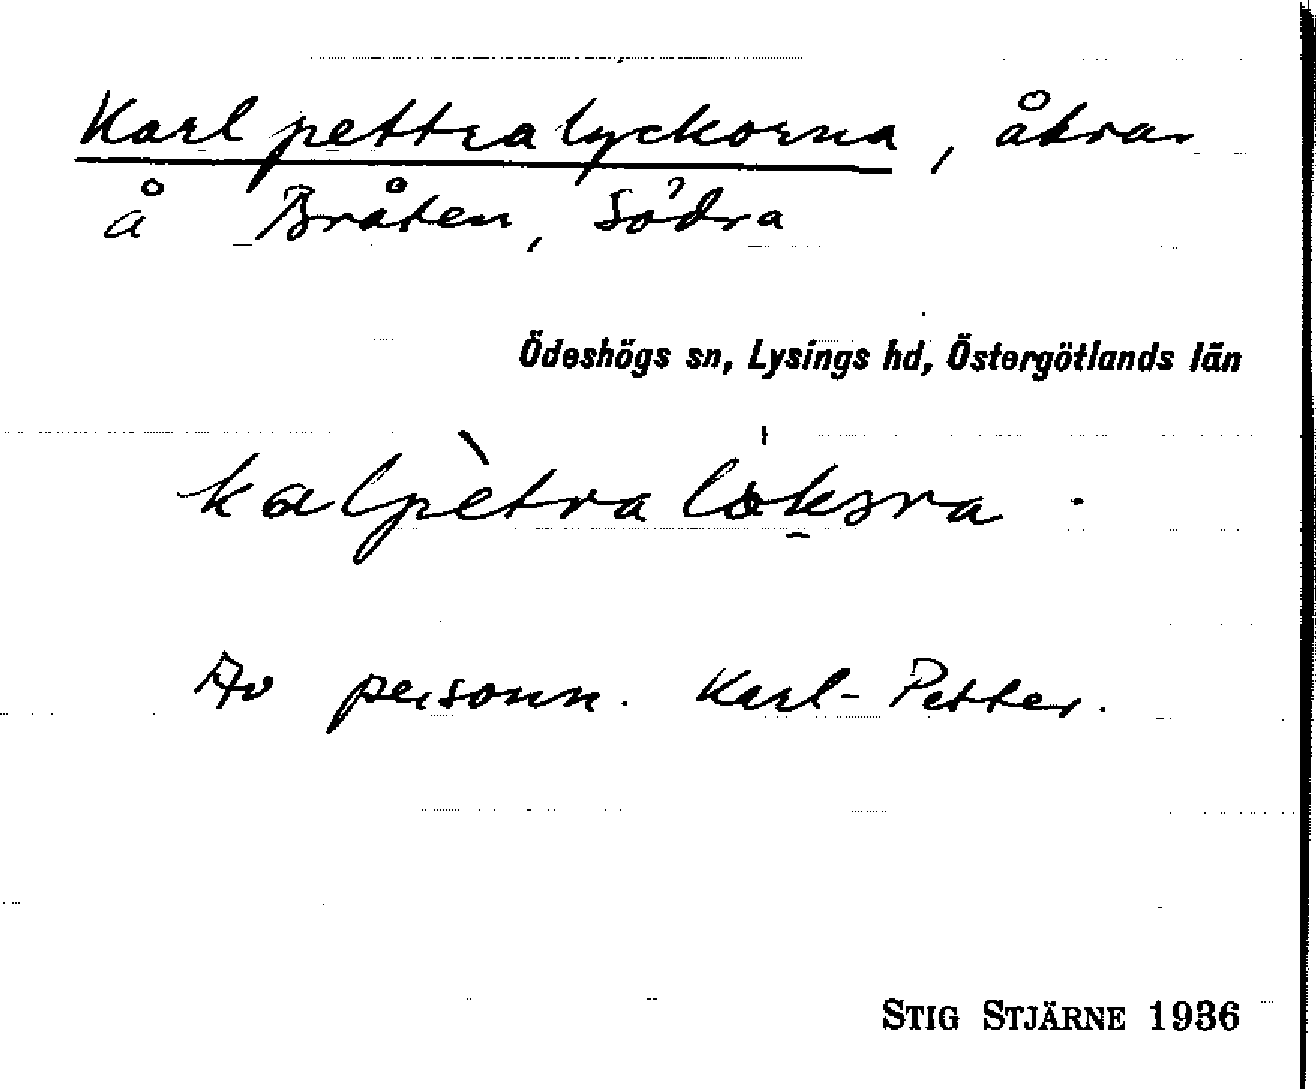 Karlpettralyckorna, åkrar
å Bråten, Södra
Ödeshögs sn, Lysings hd, Östergötlands län
kalpètra
Av personn. Karl-Petter.
STIG STJÄRNE 1936